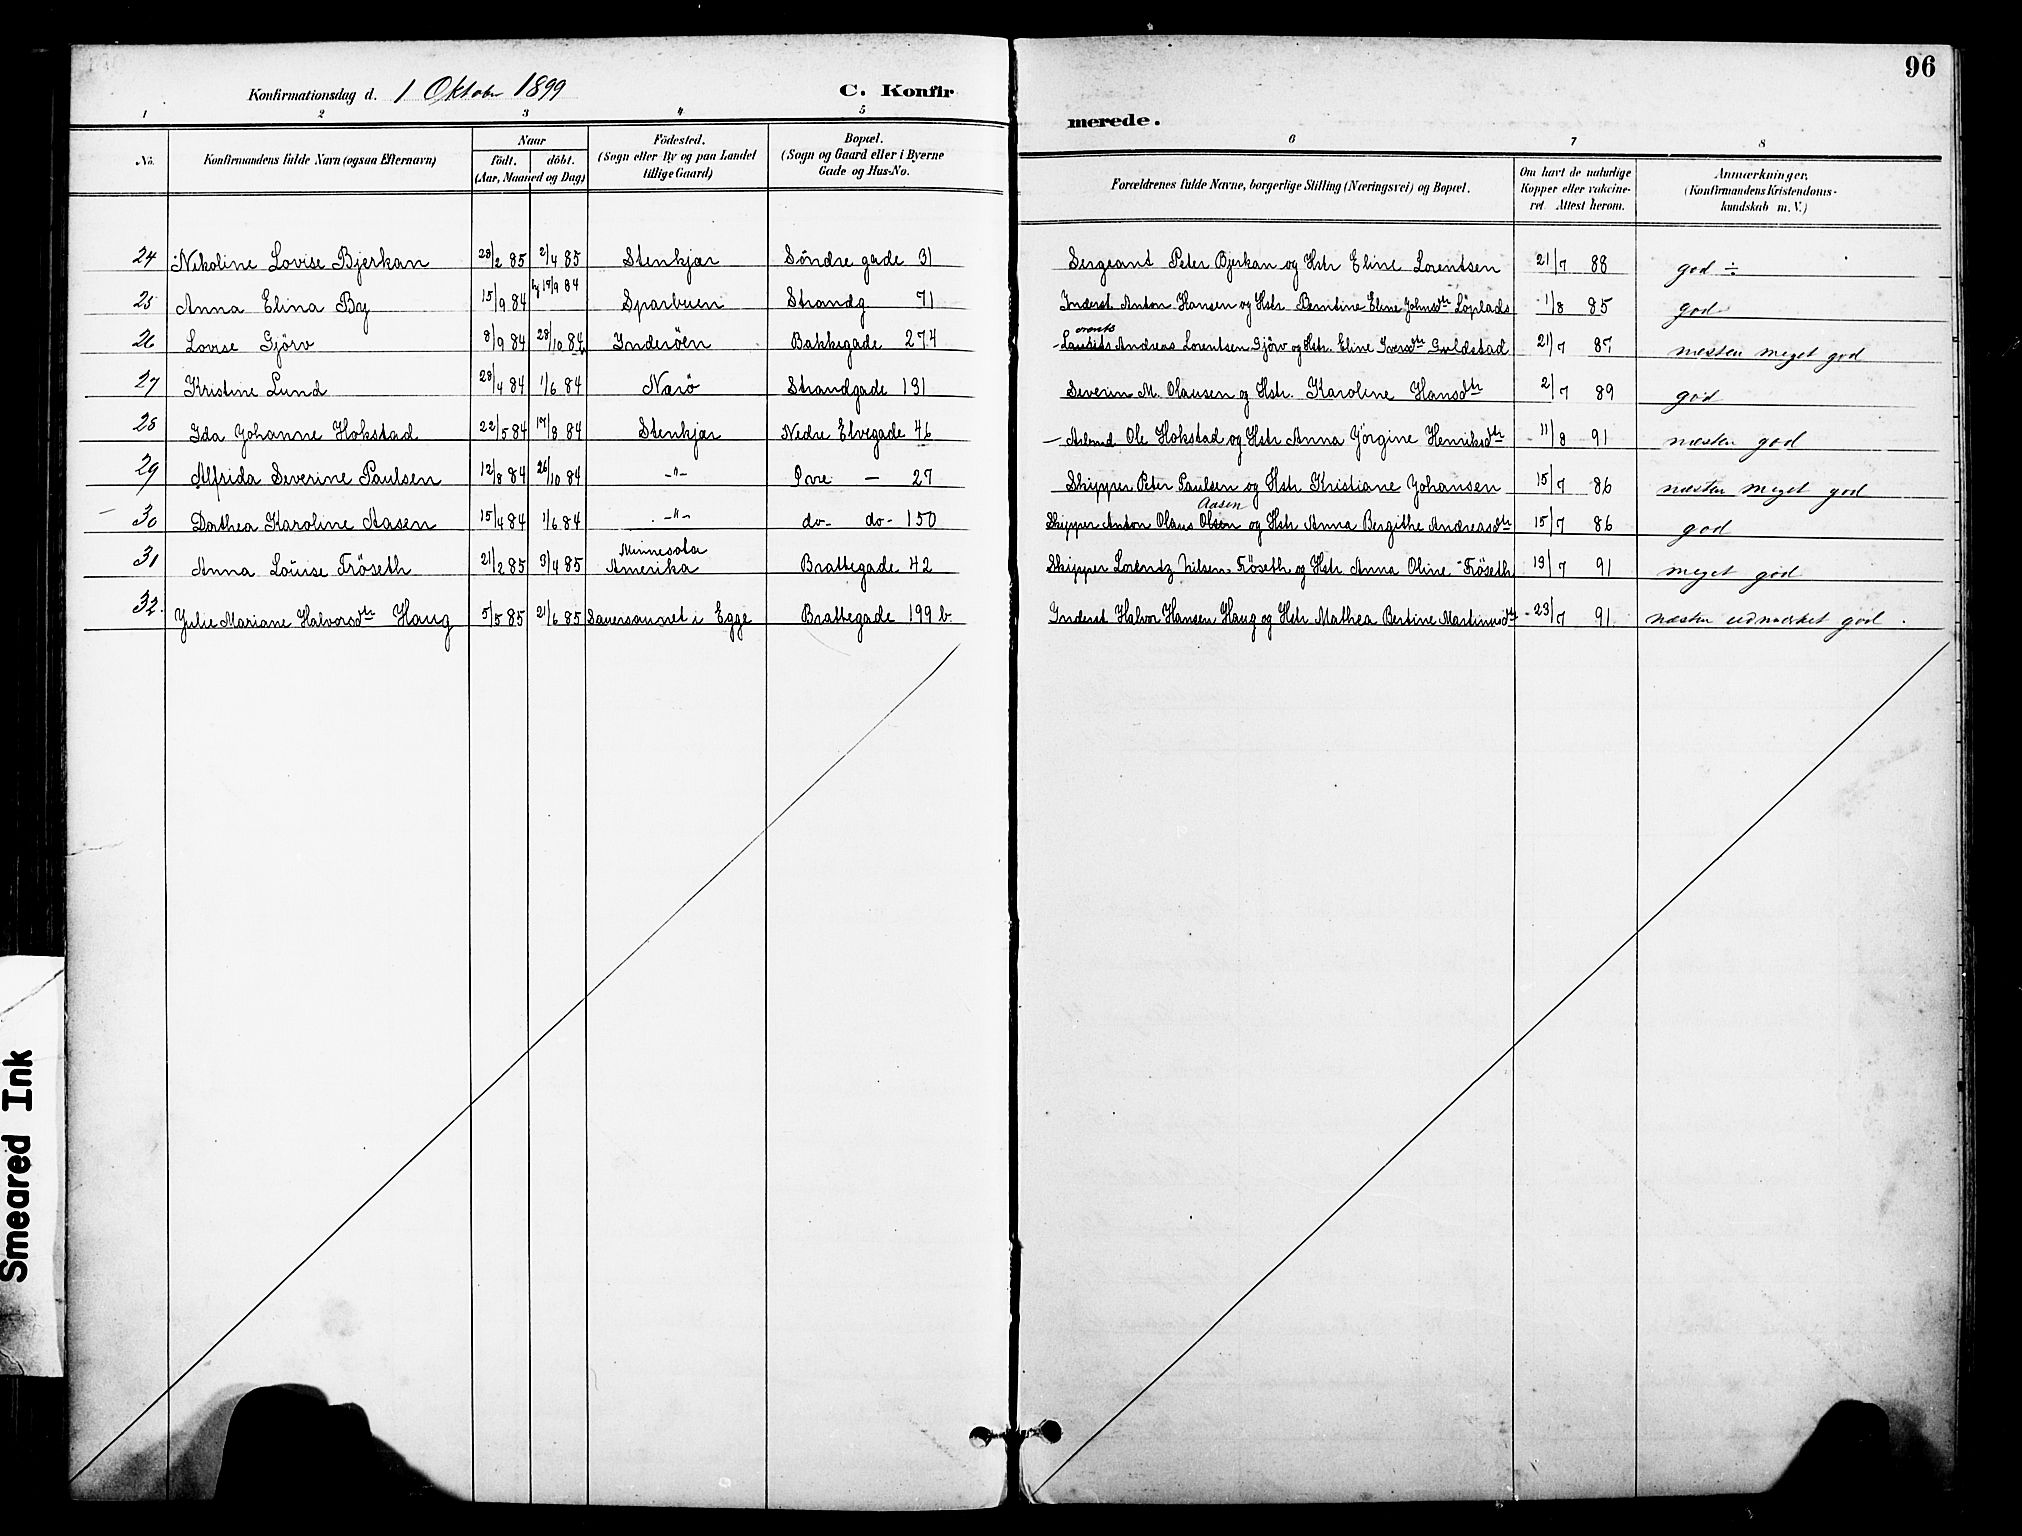 96
Konfirmationsdag d. 1 Oktober 1899 C. Konfir merede.
1 2 3 4 5 6 7 8
No. Konfirmandens fulde Navn (ogsaa Efternavn) Naar født. døbt. (Aar, Maaned og Dag) Fødested. (Sogn eller By og paa Landet tillige Gaard) Bopæl. (Sogn og Gaard eller i Byerne Gade og Hus-No. Forældrenes fulde Navne, borgerlige Stilling (Næringsvei) og Bopæl. Om havt de naturlige Kopper eller vakcineret. Attest herom. Anmærkninger. (Konfirmandens Kristendomskundskab m. V.)
24 Nikoline Lovise Bjerkan 28/2 85 2/4 85 Stenkjær Söndre gade 31 Sergeant Peter Bjerkan og Hstr Eline Lorentsen 21/7 88 god ÷
25 Anna Elina By 15/9 84 17/9 84 Sparbuen Strandg 71 Inderst Anton Hansen og Hstr. Berntine Eline Johnsdtr Löplads 1/8 85 god
26 Lovise Gjörv 8/9 84 28/10 84 Inderöen Bakkegade 274 Andreas Lorentsen Gjörv og Hstr. Eline Iversdtr Guldstad 21/7 87 næsten meget god
27 Kristine Lund 28/4 84 1/6 84 Nærö Strandgade 131 Severin M. Olausen og Hstr. Karoline Hansdtr 2/7 89 god
28 Ida Johanne Hokstad 22/5 84 17/8 84 Stenkjær Nedre Elvegade 46 Arbmd Ole Hokstad og Hstr Anna Jörgine Henriksdtr 11/8 91 næsten god
29 Alfrida Severine Paulsen 12/8 84 26/10 84 -"- Övre — 27 Skipper Peter Paulsen og Hstr Kristiane Johansen 15/7 86 næsten meget god
30 Dorthea Karoline Aasen 15/4 84 1/6 84 -"- do- do- 150 Skipper Anton Olaus Olsen Aasen og Hstr Anna Bergithe Andreasdtr 15/7 86 god
31 Anna Louise Fröseth 21/2 85 3/4 85 Minnesota Amerika Brattegade 42 Skipper Lorentz Nilsen Fröseth og Hstr Anna Oline Fröseth 19/7 91 meget god
32. Julie Mariane Halvorsdtr Haug 5/5 85 21/6 85 i Egge Brattegade 199 b. Inderst Halvor Hansen Haug og Hstr Mathea Bertine Martinusdtr 23/7 91 næsten udmærket god.
Smeared Ink